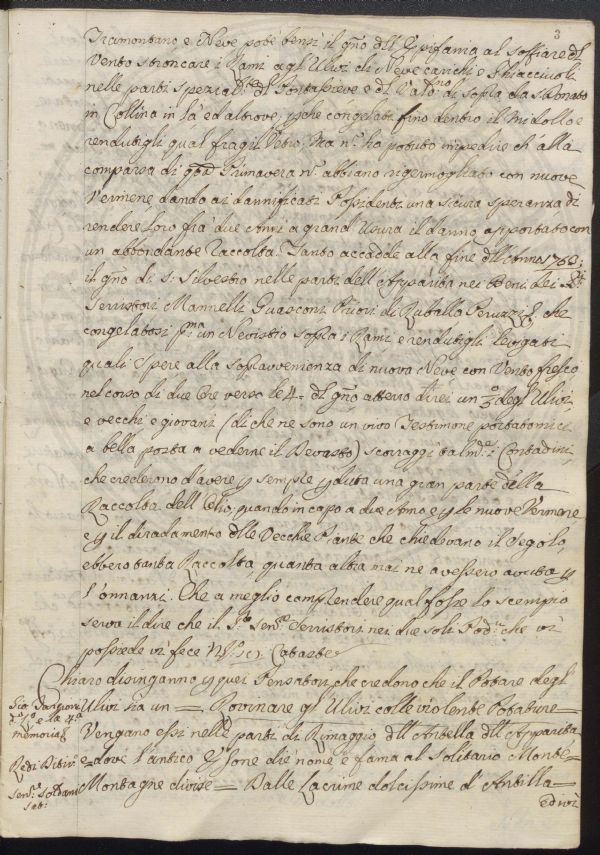 3
Tramontano e Neve potè bensì il gno dll' Epifania al soffiare dl
Vento stroncare i Rami agl' Ulivi di Neve carichi e Ghiacciuoli
nelle parti spezialte dl Pontassieve e dl Valdno di sopra da S. Donato
in Collina in là ed altrove, che congelate fino dentro il Midollo e
rendutigli qual fragil Vetro, Ma n. ha potuto impedire ch' alla
comparsa di qta Primavera n. abbiano rigermogliato con nuove
Vermene dando ai dannificati Possidenti una sicura speranza di
rendere loro frà due anni a grand' Usura il danno apportato con
un abbondante Raccolta. Tanto accadde alla fine dll' Anno 1762:
il gno di S. Silvestro nelle parti dell' Apparita nei Beni dei SS.ri
Serristori Mannelli Guasconi Priori di Ruballo Peruzzi che
congelatosi pma un Nevistio sopra i Rami, e rendutigli levigati
quali Spere alla sopravvenienza di nuova Neve con Vento fresco
nel corso di due Ore verso le 4 dl gno atterrò direi un 3zo degl' Ulivi,
e vecchi e giovani (di che ne sono un vivo Testimone portatomici
a bella posta a vederne il Devasto) scoraggì talmte i Contadini,
che crederono d'avere p sempre pduta una gran parte della
Raccolta dell' Olio, quando in capo a due Anni e p le nuove Vermene
e p il diradamento dlle Vecchie Piante che chiedevano il Segolo,
ebbero tanta Raccolta, quanta altra mai ne avessero avuta p
l'innanzi. Che a meglio comprendere qual fosse lo scempio
serva il dire che il Sre Sente Serristori nei due soli Podri che vi
possiede vi fece Cataste
Chiaro disinganno p quei Pensatori, che credono che il Potare degl'
Ulivi sia un = Rovinare gl' Ulivi colle violente Potature =
Vengano essi nelle parti di Rimaggio dll' Antella dll' Apparita
e dove l'antico Essone diè nome e fama al solitario Monte =
Montagne divise = Dalle Lacrime dolcissime d' Antilla =
ed ivi
Gio. Targioni
e la 4a
Memoria
Redi Ditir.
Sente Soldani
Sat: